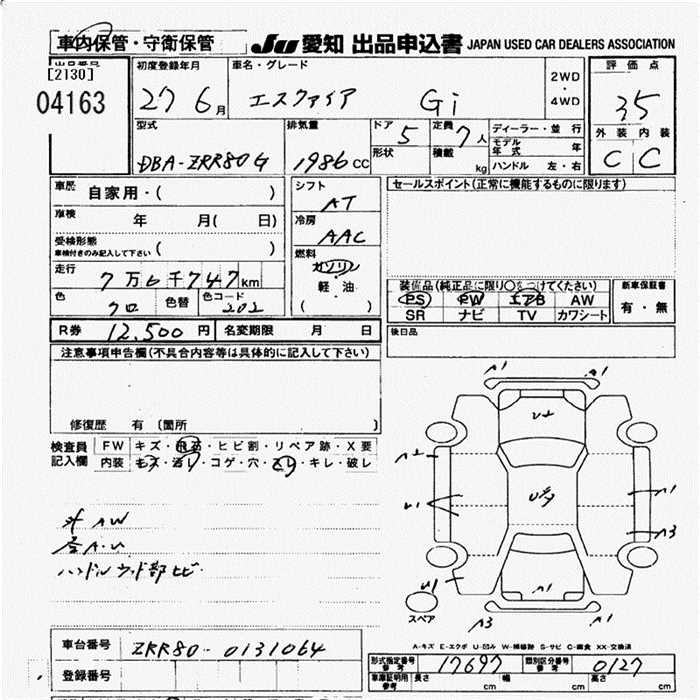 車内保管・守衛保管 JU 愛知 出品申込書 JAPAN USED CAR DEALERS ASSOCIATION
出品番号 初度登録年月 車名・グレード 2WD・4WD 評価点
[2130]
04163 27 6月 エスクァイア Gi 35
型式 排気量 ドア 5 定員 7人 ディーラー・並行 外装 内装
DBA-ZRR80G 1986cc 形状 積載 kg モデル年式 年 C C
ハンドル 左・右
車歴 自家用・( ) シフト AT セールスポイント(正常に機能するものに限ります)
車検 年 月( 日) 冷房 AAC
受検形態
車検付きのみ記入して下さい ( ) 燃料 ガソリン
走行 7万6千747km 軽油 装備品(純正品に限り○をつけてください) 新車保証書
色 クロ 色替 色コード 202 ( ) PS PW エアB AW 有・無
SR ナビ TV カワシート
R券 12,500円 名変期限 月 日 後日品
注意事項申告欄(不具合内容等は具体的に記入して下さい)
修復歴 有 〔箇所 〕
検査員記入欄 FW キズ・飛石・ヒビ割・リペア跡・X要
内装 キズ・汚レ・コゲ・穴・スレ・キレ・破レ
A1 A1
U1
A1
A3
U1
A1
A3 U1
スペア
外 AW
ハンドルウッド部ヒビ
A-キズ E-エクボ U-凹み W-補修跡 S-サビ C-腐食 XX-交換済
車台番号 ZRR80-0131064
登録番号
型式指定番号 参考 17697 類別区分番号 参考 0127
車庫証明用 参考 長さ cm 幅 cm 高さ cm